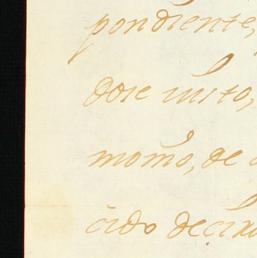 pondiente,
dose visto,
momo, de
cido decira